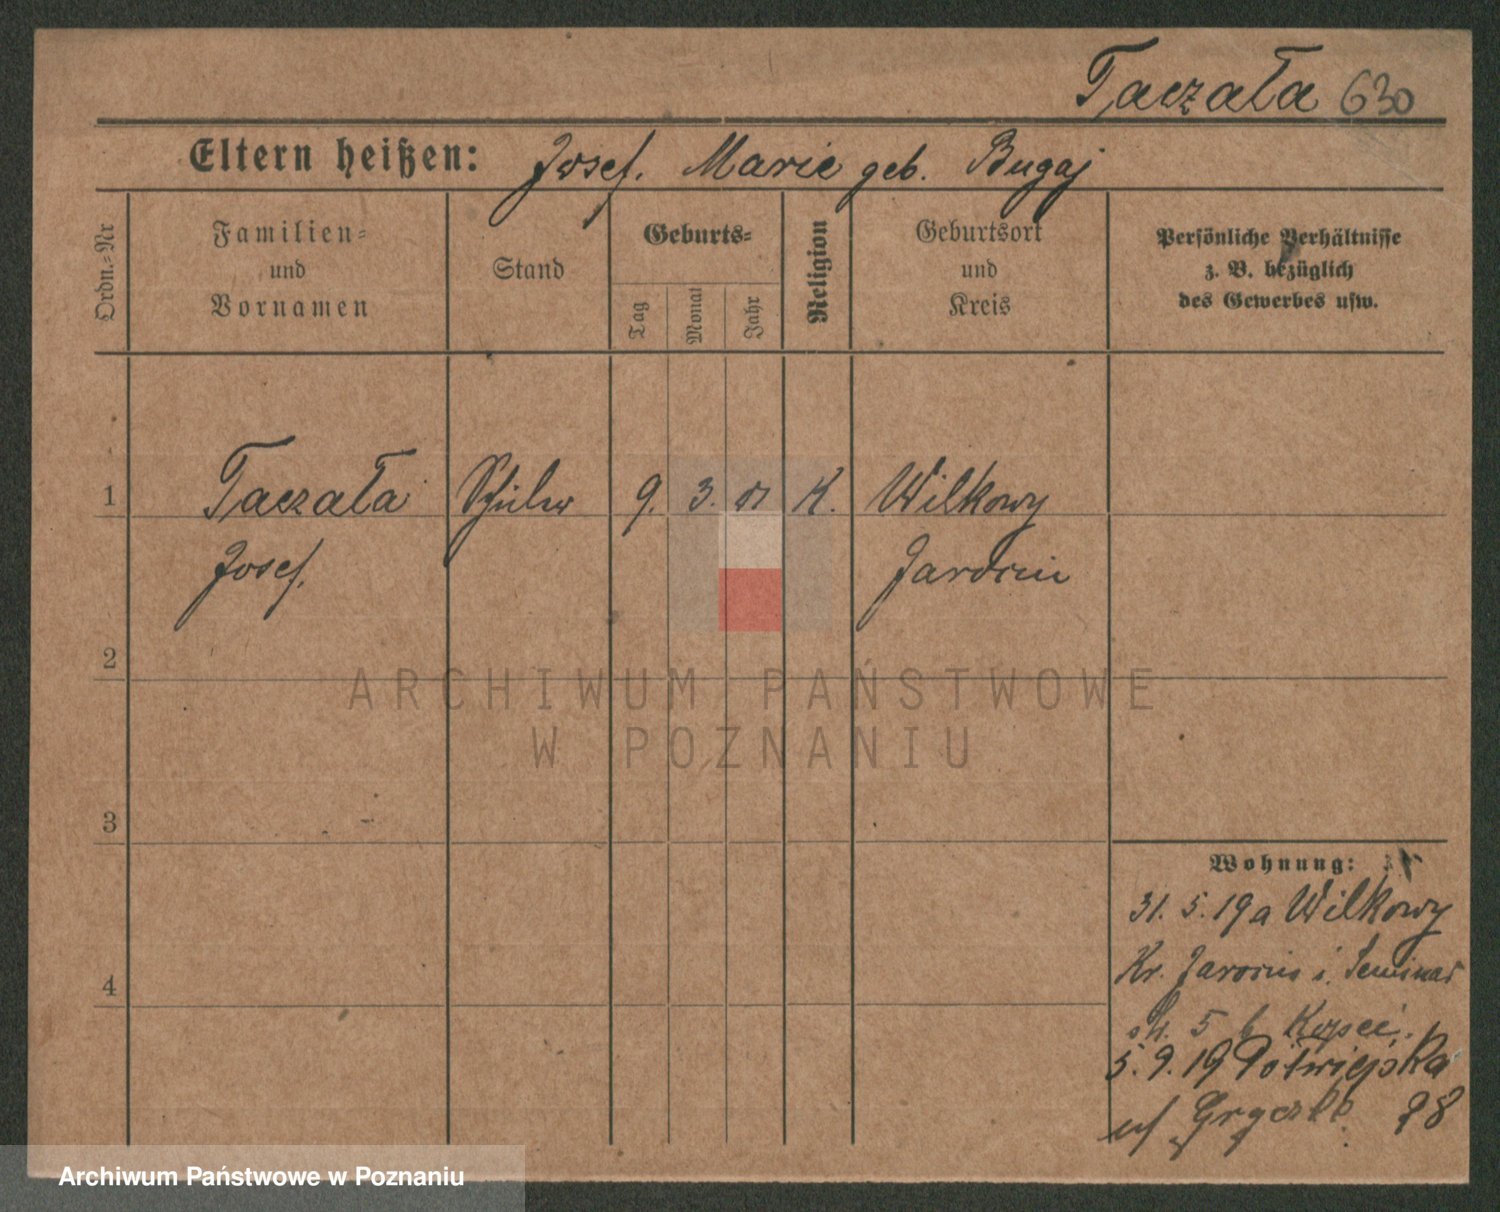 Taczała 630
Eltern heißen: Josef. Marie geb. Bugaj
Ordn.=Nr
Familien=
und
Vornamen
Stand
Geburts=
Tag
Monat
Jahr
Religion
Geburtsort
und
Kreis
Persönliche Verhältnisse
z. B. bezüglich
des Gewerbes usw.
1 Taczała Schüler 9. 3. K. Wilkowy
Josef. Jarocin
2
3
4
Wohnung:
31. 5. 19 a Wilkowy
Kr. Jarocin i. Seminar
5
5. 9. 19 Półwiejska
28
ARCHIWUM PAŃSTWOWE
W POZNANIU
Archiwum Państwowe w Poznaniu